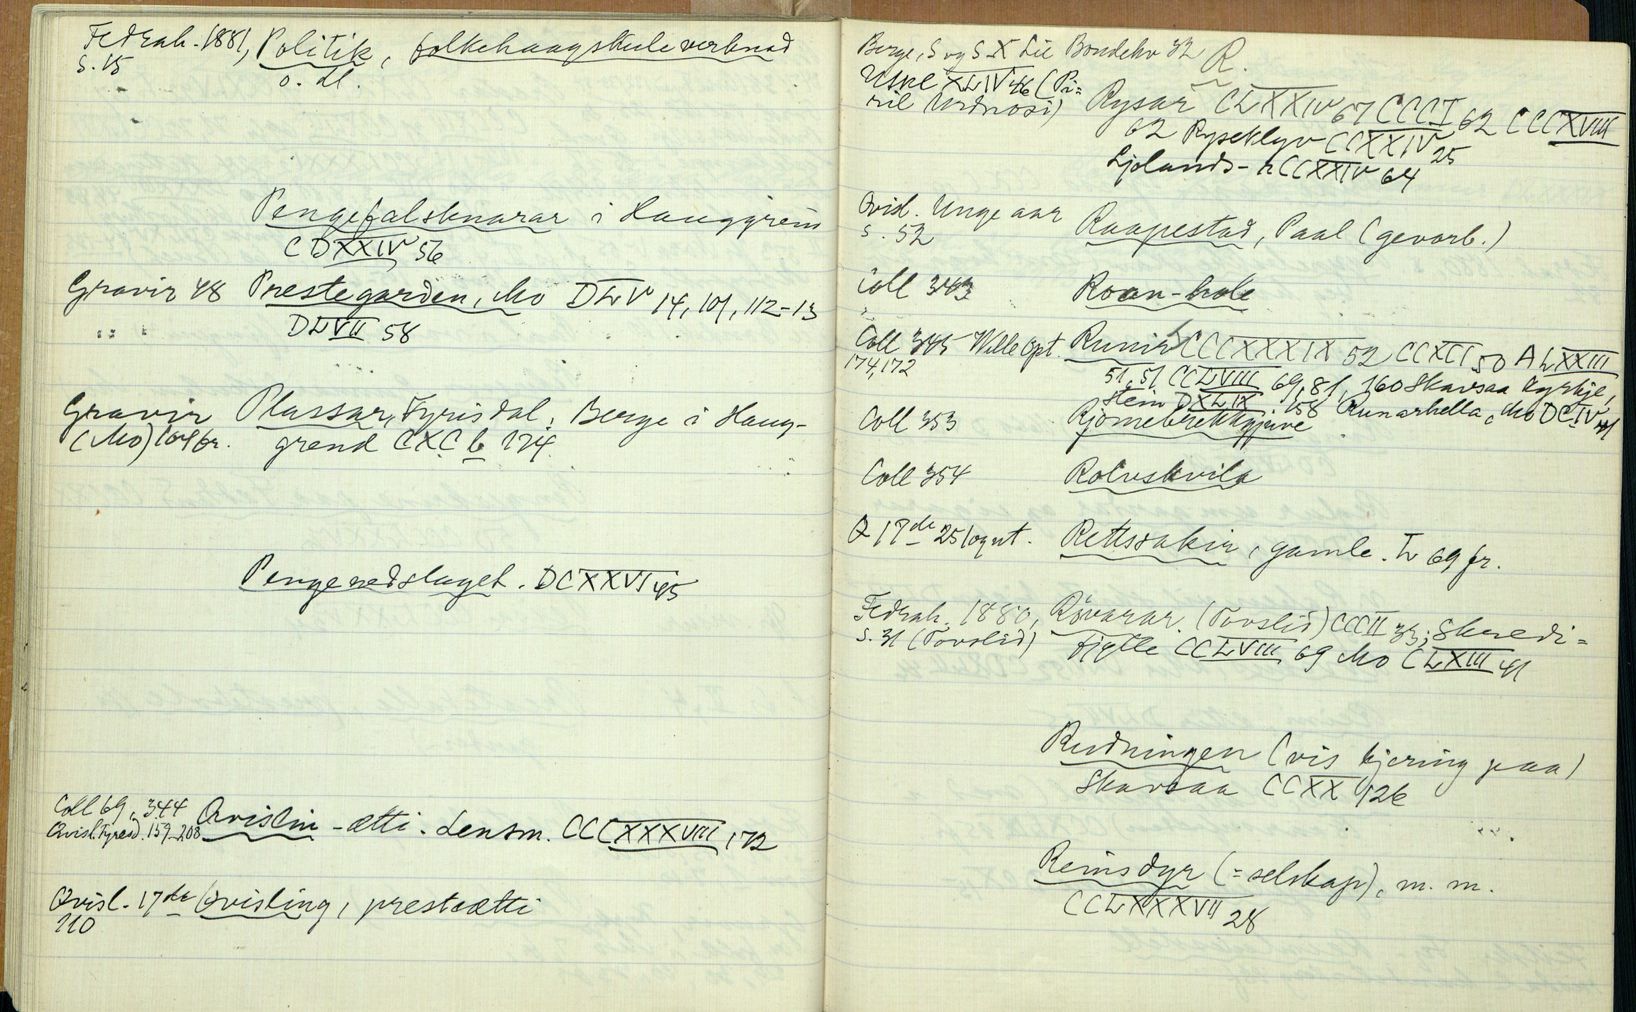 Fedrah. 1881, Politik, folkehaagskuleverknad
s. 15
o. dl.
Pengefalsknarar i Hauggrein
CDXXIV 56
Gravir 48 Prestegarden, Mo DLV 14, 101, 112-13
" : DLVII 58
Gravir Plassar, Fyrisdal, Berge i Haug-
(Mo) 104 fr. grend CXC b 174.
Pengenedslaget. DCXXVI 45
Coll 69, 344 Qvislin-ætti. Lensm. CCCXXXVIII, 172
Qvisl. Fyresd. 159-208
Qvisl. 17de Qvisling, prestætti
110
Berge, S og S. X Lie Bondehv 32 R.
Uske XLIV 46 (Pi=
ril Urdnosi) Rysar CLXXIV 67 CCCI 62 CCCXVIII
62 Ryseklyv CCXXIV 25
Ljolands- h CCXXIV 64
Qvisl. Unge aar Raapestad, Paal (gevorb.)
s. 52
Coll 343 Roan-hole
Coll 345 Wille Opt. Runir CCCXXXIX 52 CCXCI 50 ALXXIII
174, 172
51, 51 CCLVIII 69, 81, 160 Skavsaa kyrkje,
Stein DXLIX 158 Runarhella, Mo DCIV 41
Coll 353 Rjomebrekkgjuve
Coll 354 Rolvskvila
Q 17de 251 og ut. Rettssakir, gamle. L 69 fr.
Fedrah. 1880, Røvarar. (Tovslid) CCCII 33; Skredi=
s. 31 (Tovslid) fjelle CCLVIII 69 Mo CLXIII 41
Rudningen (vis kjering paa)
Skavsaa CCXX 126
Reinsdyr (=selskap), m. m.
CCLXXXVII 28